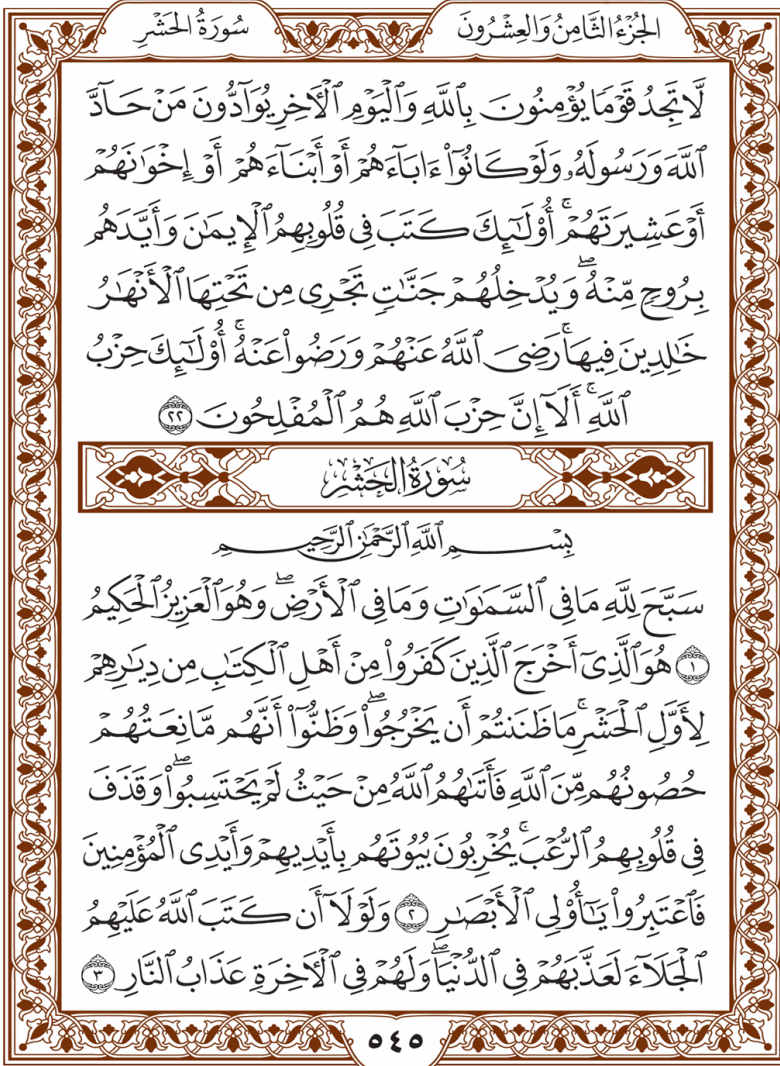 الجُزْءُ الثَّامِنُ وَالعِشْرُونَ
سُورَةُ الحَشْرِ
لَّا تَجِدُ قَوْمًا يُؤْمِنُونَ بِٱللَّهِ وَٱلْيَوْمِ ٱلْأَخِرِ يُوَآدُّونَ مَنْ حَآدَّ
ٱللَّهَ وَرَسُولَهُۥ وَلَوْ كَانُوٓا۟ ءَابَآءَهُمْ أَوْ أَبْنَآءَهُمْ أَوْ إِخْوَٰنَهُمْ
أَوْ عَشِيرَتَهُمْ ۚ أُو۟لَٰٓئِكَ كَتَبَ فِى قُلُوبِهِمُ ٱلْإِيمَٰنَ وَأَيَّدَهُم
بِرُوحٍ مِّنْهُ ۖ وَيُدْخِلُهُمْ جَنَّٰتٍ تَجْرِى مِن تَحْتِهَا ٱلْأَنْهَٰرُ
خَٰلِدِينَ فِيهَا ۚ رَضِىَ ٱللَّهُ عَنْهُمْ وَرَضُوا۟ عَنْهُ ۚ أُو۟لَٰٓئِكَ حِزْبُ
ٱللَّهِ ۚ أَلَآ إِنَّ حِزْبَ ٱللَّهِ هُمُ ٱلْمُفْلِحُونَ ٢٢
سُورَةُ الحَشْرِ
بِسْمِ ٱللَّهِ ٱلرَّحْمَٰنِ ٱلرَّحِيمِ
سَبَّحَ لِلَّهِ مَا فِى ٱلسَّمَٰوَٰتِ وَمَا فِى ٱلْأَرْضِ ۖ وَهُوَ ٱلْعَزِيزُ ٱلْحَكِيمُ
١ هُوَ ٱلَّذِىٓ أَخْرَجَ ٱلَّذِينَ كَفَرُوا۟ مِنْ أَهْلِ ٱلْكِتَٰبِ مِن دِيَٰرِهِمْ
لِأَوَّلِ ٱلْحَشْرِ ۚ مَا ظَنَنتُمْ أَن يَخْرُجُوا۟ ۖ وَظَنُّوٓا۟ أَنَّهُم مَّانِعَتُهُمْ
حُصُونُهُم مِّنَ ٱللَّهِ فَأَتَىٰهُمُ ٱللَّهُ مِنْ حَيْثُ لَمْ يَحْتَسِبُوا۟ ۖ وَقَذَفَ
فِى قُلُوبِهِمُ ٱلرُّعْبَ ۚ يُخْرِبُونَ بُيُوتَهُم بِأَيْدِيهِمْ وَأَيْدِى ٱلْمُؤْمِنِينَ
فَٱعْتَبِرُوا۟ يَٰٓأُو۟لِى ٱلْأَبْصَٰرِ ٢ وَلَوْلَآ أَن كَتَبَ ٱللَّهُ عَلَيْهِمُ
ٱلْجَلَآءَ لَعَذَّبَهُمْ فِى ٱلدُّنْيَا ۖ وَلَهُمْ فِى ٱلْأَخِرَةِ عَذَابُ ٱلنَّارِ ٣
٥٤٥